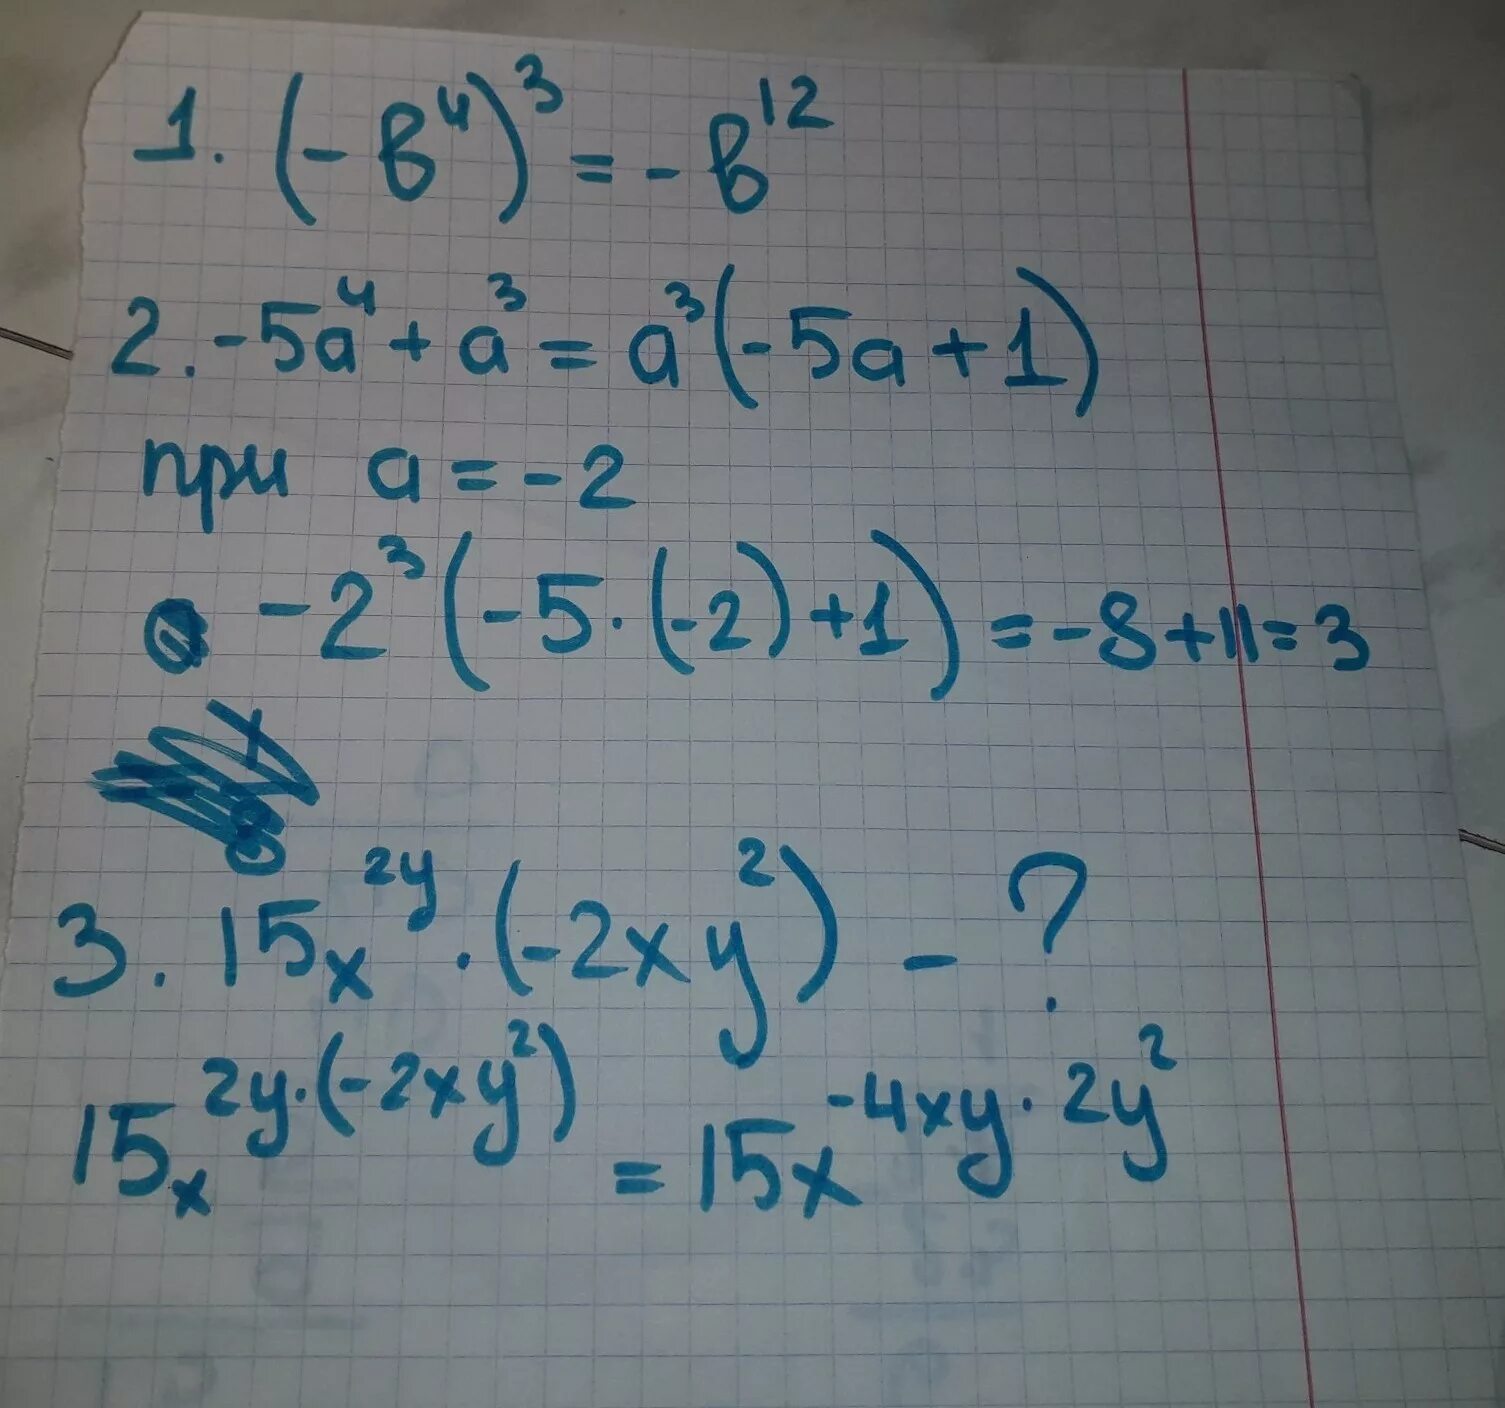 1. (-в⁴)³ = -в¹²
2. -5а⁴ + а³ = а³(-5а + 1)
при а = -2
-2³(-5·(-2)+1) = -8+11=3
3. 15x^2y · (-2xy²) - ?
15x^2y·(-2xy²) = 15x^-4xy·2y²